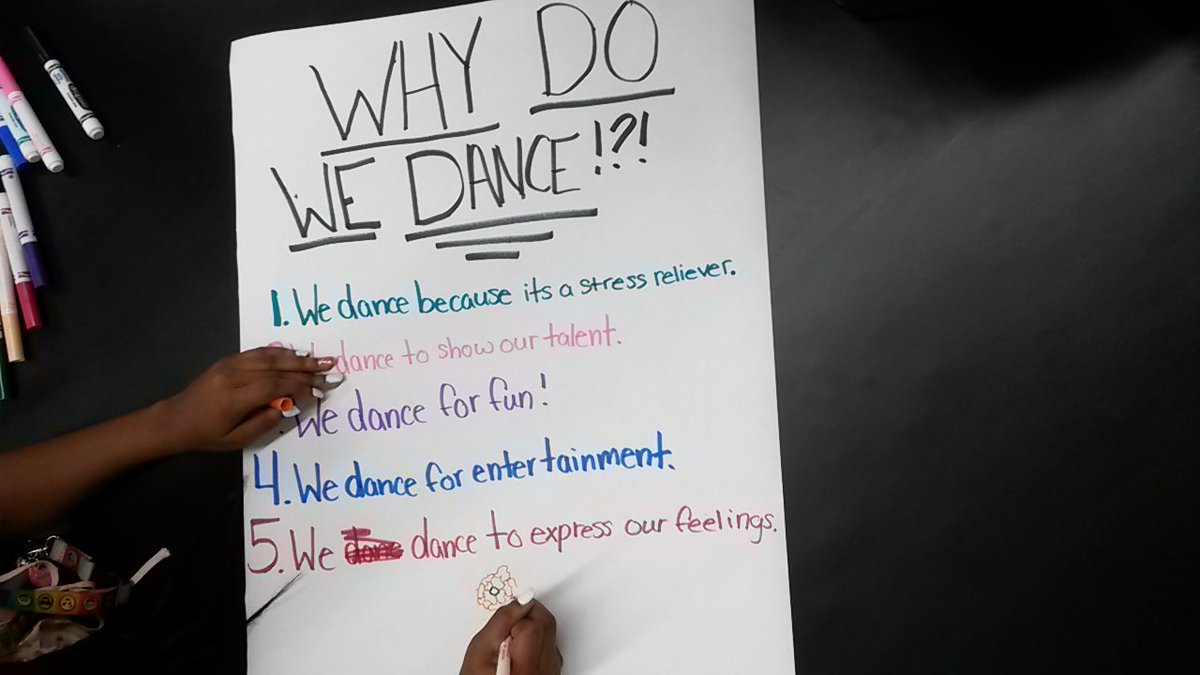 WHY DO
WE DANCE!?!
1. We dance because its a stress reliever.
dance to show our talent.
. We dance for fun!
4. We dance for entertainment.
5. We dance to express our feelings.